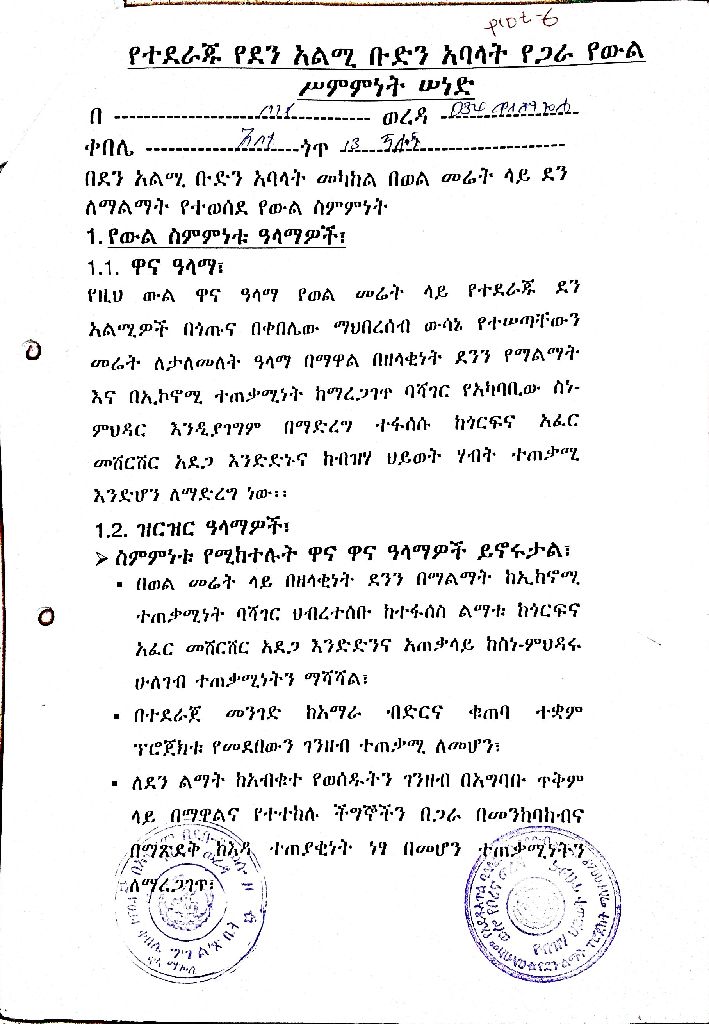 plot-6
የተደራጁ የደን አልሚ ቡድን አባላት የጋራ የውል
ሥምምነት ሠነድ
በ ---------- ወረዳ ----------
ቀበሌ ---------- ጎጥ 13 ----------
በደን አልሚ ቡድን አባላት መካከል በወል መሬት ላይ ደን
ለማልማት የተወሰደ የውል ስምምነት
1. የውል ስምምነቱ ዓላማዎች፣
1.1. ዋና ዓላማ፣
የዚህ ውል ዋና ዓላማ የወል መሬት ላይ የተደራጁ ደን
አልሚዎች በጎጡና በቀበሌው ማህበረሰብ ውሳኔ የተሠጣቸውን
መሬት ለታለመለት ዓላማ በማዋል በዘላቂነት ደንን የማልማት
እና በኢኮኖሚ ተጠቃሚነት ከማረጋገጥ ባሻገር የአካባቢው ስነ-
ምህዳር እንዲያገግም በማድረግ ተፋሰሱ ከጎርፍና አፈር
መሸርሸር አደጋ እንድድኑና ከብዝሃ ህይወት ሃብት ተጠቃሚ
እንድሆን ለማድረግ ነው፡፡
1.2. ዝርዝር ዓላማዎች፣
➢ ስምምነቱ የሚከተሉት ዋና ዋና ዓላማዎች ይኖሩታል፣
▪ በወል መሬት ላይ በዘላቂነት ደንን በማልማት ከኢኮኖሚ
ተጠቃሚነት ባሻገር ህብረተሰቡ ከተፋሰስ ልማቱ ከጎርፍና
አፈር መሸርሸር አደጋ እንድድንና አጠቃላይ ከስነ-ምህዳሩ
ሁለገብ ተጠቃሚነትን ማሻሻል፣
▪ በተደራጀ መንገድ ከአማራ ብድርና ቁጠባ ተቋም
ፕሮጀክቱ የመደበውን ገንዘብ ተጠቃሚ ለመሆን፣
▪ ለደን ልማት ከአብቁተ የወሰዱትን ገንዘብ በአግባቡ ጥቅም
ላይ በማዋልና የተተከሉ ችግኞችን በጋራ በመንከባከብና
በማጽደቅ ከእዳ ተጠያቂነት ነፃ በመሆን ተጠቃሚነትን
ለማረጋገጥ፣